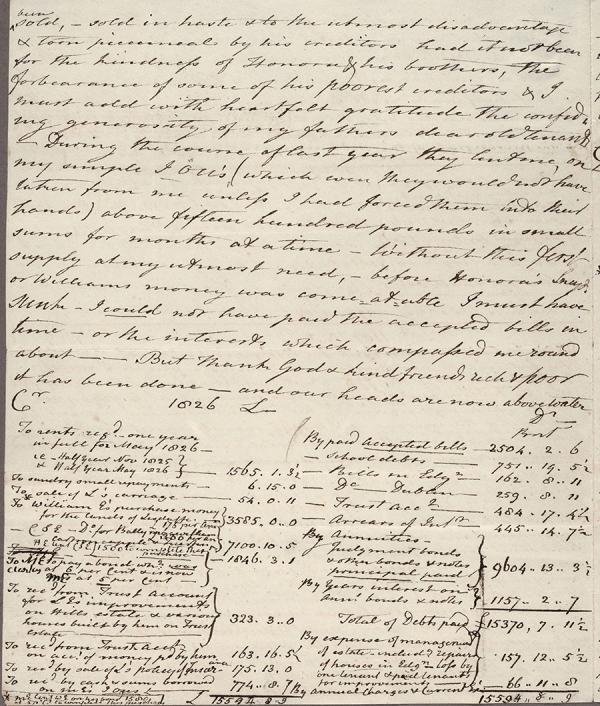 been
sold, – sold in haste & to the utmost disadvantage
& torn piecemeals by his creditors had it not been
for the kindness of Honora & his brothers, the
forbearance of some of his poorest creditors & I
must add with heartfelt gratitude the confid
ing generosity of my fathers dear old tenants
– During the course of last year they lent me, on
my simple I O U's, (which even they would not have
taken from me unless I had forced them into their
hands) above fifteen hundred pounds in small
sums for months at a time – Without this
supply at my utmost need, – before Honora's
or Williams money was come-at-able I must have
sunk – I could not have paid the accepted bills in
time – or the interests which compassed me round
about – – But thank God & kind friends rich & poor
it has been done – and our heads are now above water
Cr 1826 £ Dr
To rents recd – one year
in full for May 1826 –
ie Half Year Nov 1825
& Half Year May 1826 – 1565. 1. 3½
To sundry small repayments – 6. 15. 0
To sale of L's carriage – 54. 0. 11
To William E's purchase money
3585. 0. 0
7100. 10. 5
1846. 3. 1
at 5 per cent
To recd from Trust Account
for L E's improvements
on Mills estate & various
houses built by him on Trust
estate 323. 3. 0
To recd from Trust Acct
on acct of money pd by him 163. 16. 5½
To recd by sale of L's policy of Insurance 175. 13. 0
To recd by cash & sums borrowed
on M E's I O U's 774. 8. 7
£ 15594. 8. 9
By paid Accepted bills – 2504. 2. 6
– School debts – 751. 19. 5½
– Bells in Edgn – 162. 8. 11
– Do Dublin 259. 8. 11
– Trust Acct – 484. 17. 4½
– Arrears of Intt – 445. 14. 7½
By Annuities –
Judgment bonds
& other bonds & notes
principal paid 9604. 13. 3½
By Years interest on
Ann: bonds & notes 1157. 2. 7
Total of Debts paid £15370, 7. 11½
By expense of management
of estate – includg repairs
of houses in Edgn loss by
one tenant & paid tenants
for improvements – 157. 12. 5½
By annual charges & Current Exs – 66. 11. 8
15594. 8. 9